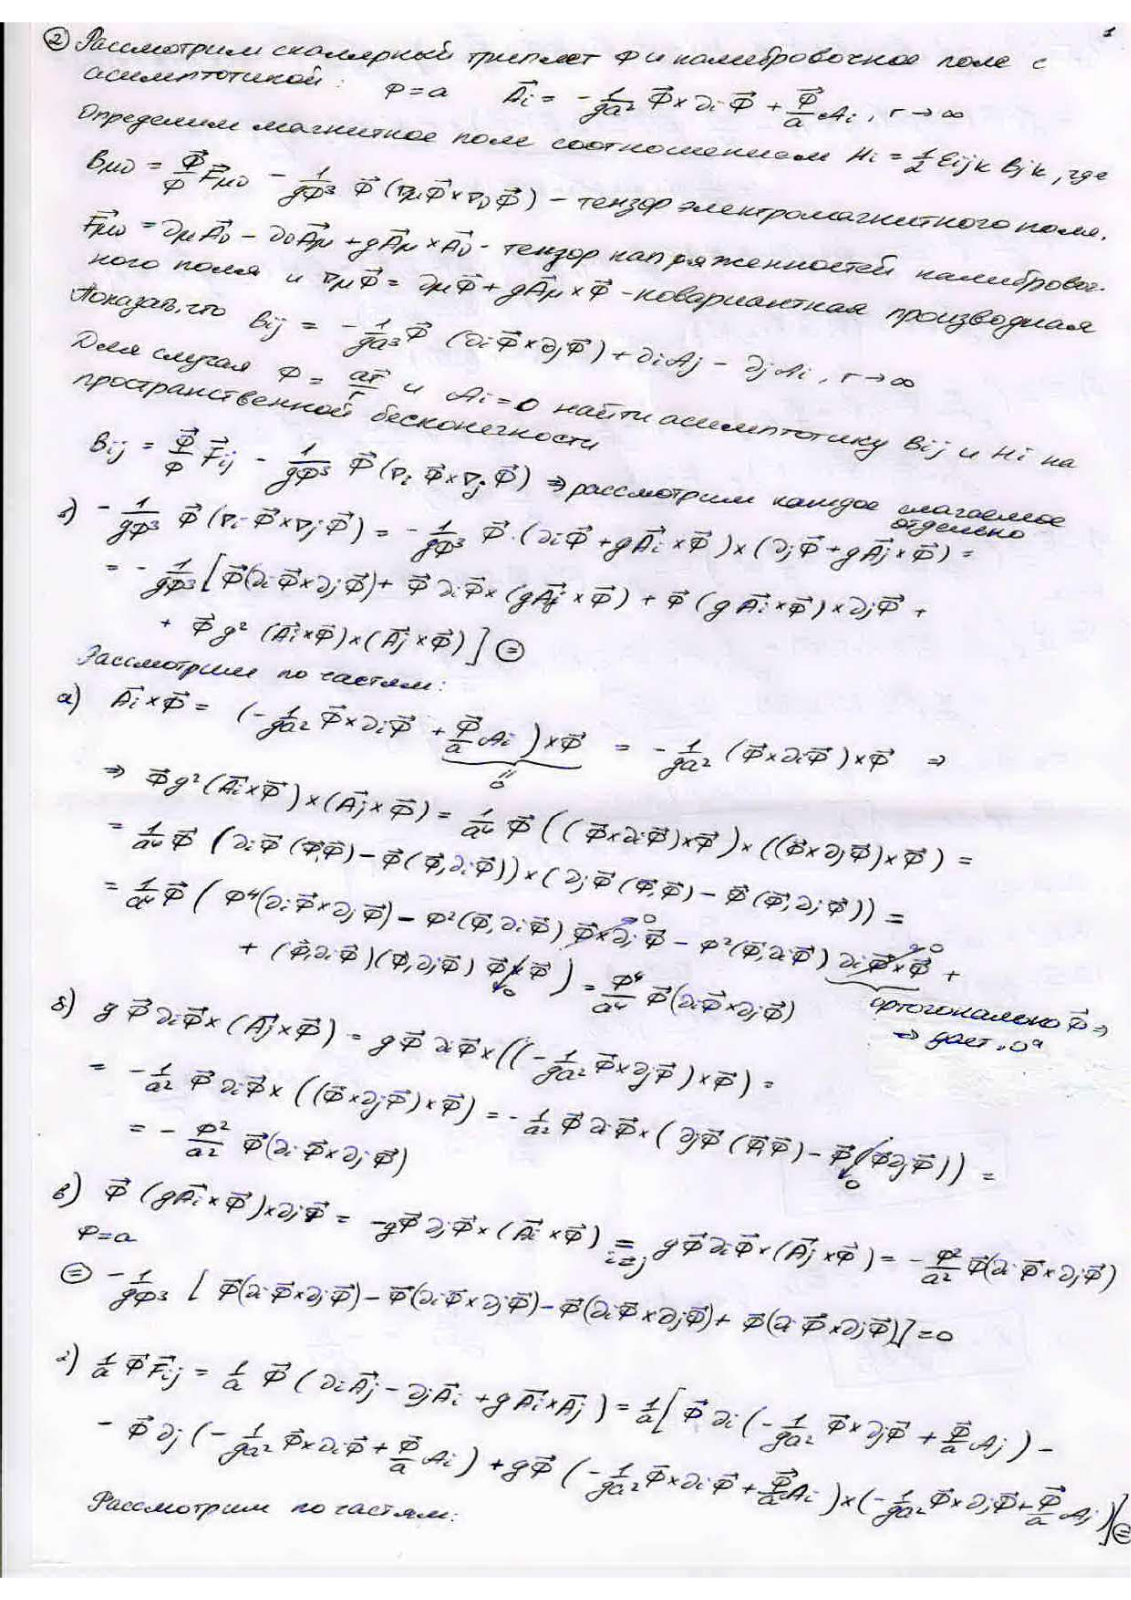 1
② Рассмотрим скалярный триплет Φ и калибровочное поле с
асимптотикой: Φ=a  \vec{A_i} = -\frac{1}{ga^2} \vec{Φ}×∂_i\vec{Φ} + \frac{\vec{Φ}}{a} A_i, r→∞
Определим магнитное поле соотношением H_i = \frac{1}{2} ε_{ijk} B_{jk}, где
B_{μν} = \frac{\vec{Φ}}{Φ} \vec{F}_{μν} - \frac{1}{gΦ^3} \vec{Φ} (∇_μ\vec{Φ}×∇_ν\vec{Φ}) – тензор электромагнитного поля.
\vec{F}_{μν} = ∂_μ\vec{A_ν} - ∂_ν\vec{A_μ} + g\vec{A_μ}×\vec{A_ν} - тензор напряженностей калибровоч-
ного поля и ∇_μ\vec{Φ} = ∂_μ\vec{Φ} + g\vec{A_μ}×\vec{Φ} - ковариантная производная
Показать, что B_{ij} = -\frac{1}{ga^3} \vec{Φ} (∂_i\vec{Φ}×∂_j\vec{Φ}) + ∂_iA_j - ∂_jA_i, r→∞
Для случая Φ = \frac{a\vec{r}}{r} и A_i=0 найти асимптотику B_{ij} и H_i на
пространственной бесконечности
B_{ij} = \frac{\vec{Φ}}{Φ} \vec{F}_{ij} - \frac{1}{gΦ^3} \vec{Φ} (∇_i\vec{Φ}×∇_j\vec{Φ}) ⇒ рассмотрим каждое слагаемое
отдельно
1) -\frac{1}{gΦ^3} \vec{Φ} (∇_i\vec{Φ}×∇_j\vec{Φ}) = -\frac{1}{gΦ^3} \vec{Φ}·(∂_i\vec{Φ} + g\vec{A_i}×\vec{Φ})×(∂_j\vec{Φ} + g\vec{A_j}×\vec{Φ}) =
= -\frac{1}{gΦ^3} [\vec{Φ}(∂_i\vec{Φ}×∂_j\vec{Φ}) + \vec{Φ} ∂_i\vec{Φ}×(g\vec{A_j}×\vec{Φ}) + \vec{Φ} (g\vec{A_i}×\vec{Φ})×∂_j\vec{Φ} +
+ \vec{Φ} g^2 (\vec{A_i}×\vec{Φ})×(\vec{A_j}×\vec{Φ})] ⊜
Рассмотрим по частям:
а) \vec{A_i}×\vec{Φ} = (-\frac{1}{ga^2} \vec{Φ}×∂_i\vec{Φ} + \frac{\vec{Φ}}{a} A_i)×\vec{Φ} = -\frac{1}{ga^2} (\vec{Φ}×∂_i\vec{Φ})×\vec{Φ} ⇒
0
⇒ \vec{Φ}g^2 (\vec{A_i}×\vec{Φ})×(\vec{A_j}×\vec{Φ}) = \frac{1}{a^4} \vec{Φ} ((\vec{Φ}×∂_i\vec{Φ})×\vec{Φ})×((\vec{Φ}×∂_j\vec{Φ})×\vec{Φ}) =
= \frac{1}{a^4} \vec{Φ} (∂_i\vec{Φ} (\vec{Φ},\vec{Φ}) - \vec{Φ}(\vec{Φ},∂_i\vec{Φ}))×(∂_j\vec{Φ}(\vec{Φ},\vec{Φ}) - \vec{Φ}(\vec{Φ},∂_j\vec{Φ})) =
= \frac{1}{a^4} \vec{Φ} (Φ^4(∂_i\vec{Φ}×∂_j\vec{Φ}) - Φ^2(\vec{Φ},∂_i\vec{Φ}) \vec{Φ}×∂_j\vec{Φ} - Φ^2(\vec{Φ},∂_j\vec{Φ}) ∂_i\vec{Φ}×\vec{Φ} +
+ (\vec{Φ},∂_i\vec{Φ})(\vec{Φ},∂_j\vec{Φ}) \vec{Φ}×\vec{Φ}) = \frac{Φ^4}{a^4} \vec{Φ}(∂_i\vec{Φ}×∂_j\vec{Φ})
ортогонально \vec{Φ} ⇒
⇒ дает „0“
б) g\vec{Φ} ∂_i\vec{Φ}×(\vec{A_j}×\vec{Φ}) = g\vec{Φ} ∂_i\vec{Φ}×((-\frac{1}{ga^2} \vec{Φ}×∂_j\vec{Φ})×\vec{Φ}) =
= -\frac{1}{a^2} \vec{Φ} ∂_i\vec{Φ}×((\vec{Φ}×∂_j\vec{Φ})×\vec{Φ}) = -\frac{1}{a^2} \vec{Φ} ∂_i\vec{Φ}×(∂_j\vec{Φ}(\vec{Φ},\vec{Φ}) - \vec{Φ}(\vec{Φ}∂_j\vec{Φ})) =
= -\frac{Φ^2}{a^2} \vec{Φ}(∂_i\vec{Φ}×∂_j\vec{Φ})
в) \vec{Φ} (g\vec{A_i}×\vec{Φ})×∂_j\vec{Φ} = -g\vec{Φ} ∂_j\vec{Φ}×(\vec{A_i}×\vec{Φ}) =_{i⇄j} g\vec{Φ} ∂_i\vec{Φ}×(\vec{A_j}×\vec{Φ}) = -\frac{Φ^2}{a^2} \vec{Φ}(∂_i\vec{Φ}×∂_j\vec{Φ})
Φ=a
⊜ -\frac{1}{gΦ^3} [\vec{Φ}(∂_i\vec{Φ}×∂_j\vec{Φ}) - \vec{Φ}(∂_i\vec{Φ}×∂_j\vec{Φ}) - \vec{Φ}(∂_i\vec{Φ}×∂_j\vec{Φ}) + \vec{Φ}(∂_i\vec{Φ}×∂_j\vec{Φ})] = 0
2) \frac{1}{a} \vec{Φ}\vec{F}_{ij} = \frac{1}{a} \vec{Φ} (∂_i\vec{A_j} - ∂_j\vec{A_i} + g\vec{A_i}×\vec{A_j}) = \frac{1}{a} [\vec{Φ} ∂_i(-\frac{1}{ga^2} \vec{Φ}×∂_j\vec{Φ} + \frac{\vec{Φ}}{a} A_j) -
- \vec{Φ} ∂_j(-\frac{1}{ga^2} \vec{Φ}×∂_i\vec{Φ} + \frac{\vec{Φ}}{a} A_i) + g\vec{Φ} (-\frac{1}{ga^2} \vec{Φ}×∂_i\vec{Φ} + \frac{\vec{Φ}}{a} A_i)×(-\frac{1}{ga^2} \vec{Φ}×∂_j\vec{Φ} + \frac{\vec{Φ}}{a} A_j)] ⊜
Рассмотрим по частям: